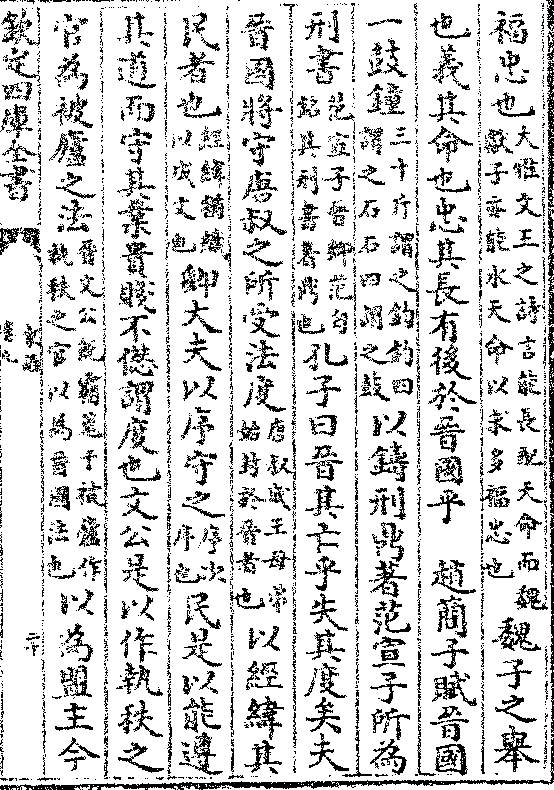 福忠也大雅文王之詩言能長配天命而魏獻子亦能永天命以求多福忠也魏子之舉
也義其命也忠其長有後於晉國乎　趙簡子賦晉國
一鼓鐘三十斤謂之鈞鈞四謂之石石四謂之鼓以鑄刑鼎著范宣子所為
刑書范宣子晉卿范匄銘其刑書著鼎也孔子曰晉其亡乎失其度矣夫
晉國將守唐叔之所受法度唐叔成王母弟始封於晉者也以經緯其
民者也經緯猶織以成文也卿大夫以序守之序次序也民是以能遵
其道而守其業貴賤不愆謂度也文公是以作執秩之
官為被廬之法晉文公既霸蒐于被廬作執秩之官以為晉國法也以為盟主今
欽定四庫全書
家語
卷九
二十